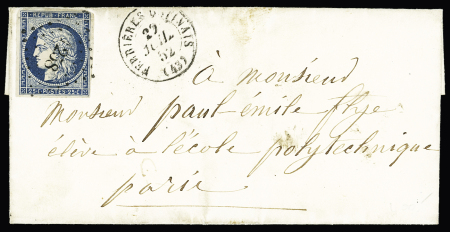 REPUB. FRANC.
25 POSTES 25
FERRIÈRES GATINAIS (43)
22
JUIL.
52
À monsieur
monsieur paul-émile flye
élève à l'école polytechnique
paris